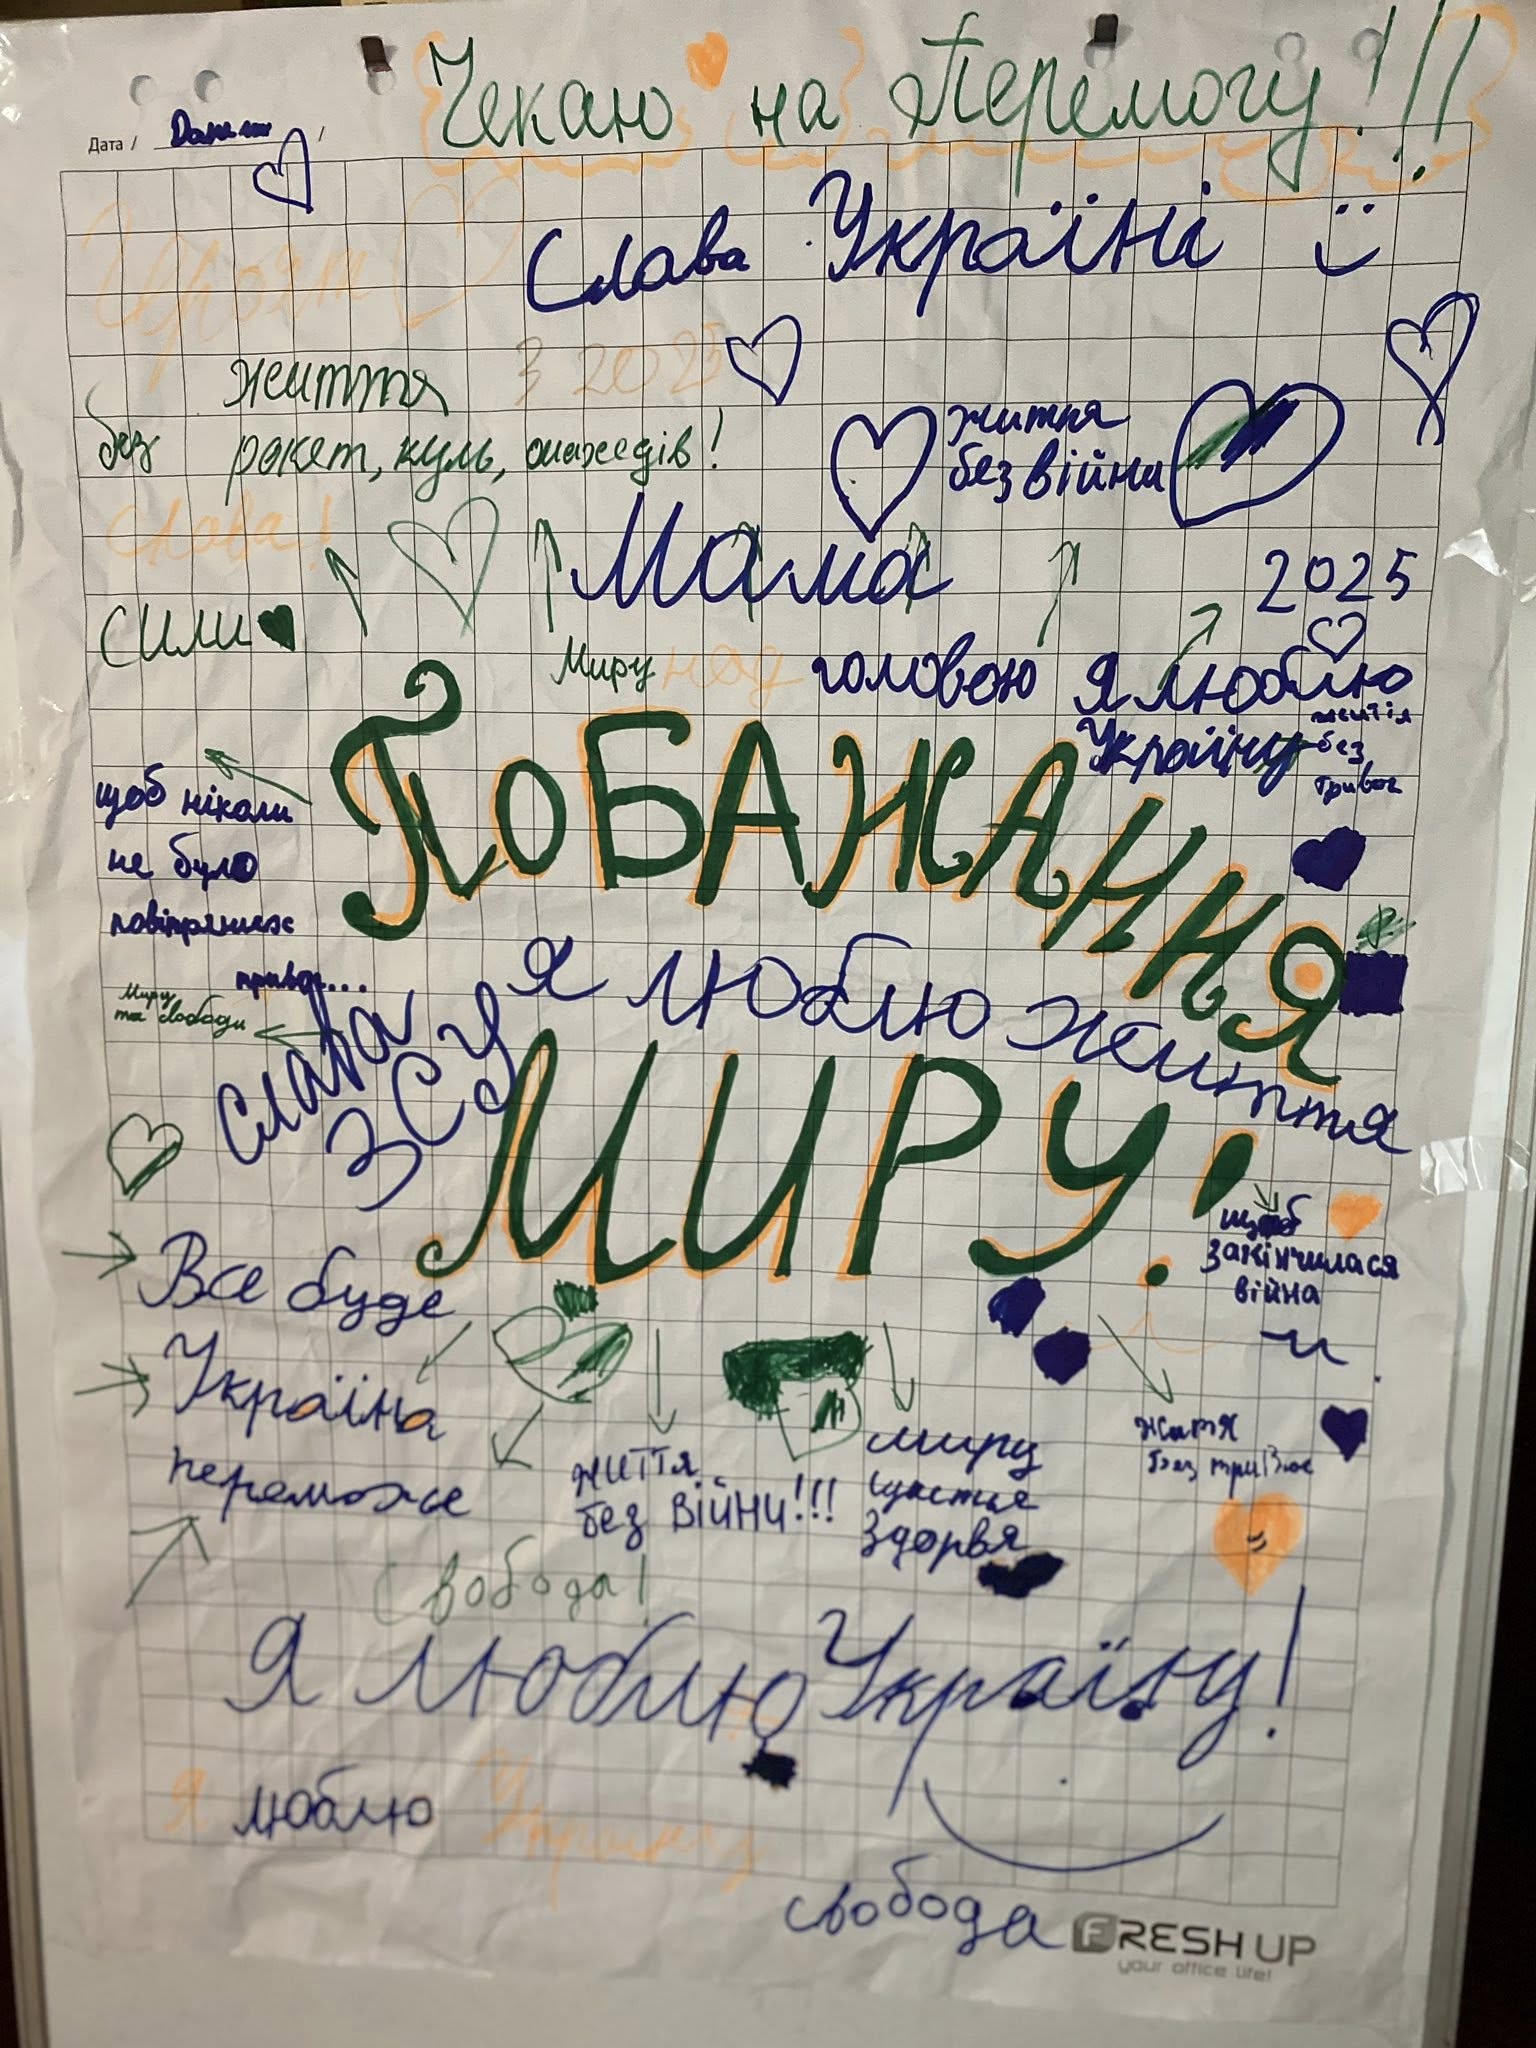 Чекаю на Перемогу!!!
Дата /
Слава Україні
З 2025
життя
без ракет, куль, снарядів!
життя
без війни
Слава!
Мама
2025
СИЛИ
Миру над головою
Я люблю
Україну
життя
без
тривог
ПОБАЖАННЯ
щоб ніколи
не було
повітряних
тривог...
Миру
та свободи
я люблю життя
Слава
ЗСУ
МИРУ!
щоб
закінчилася
війна
Все буде
Україна
переможе
життя
без війни!!!
миру
щастья
здоровя
життя
без
Свободи!
Я люблю Україну!
Я люблю Україну
свобода
FRESH UP
your office life!